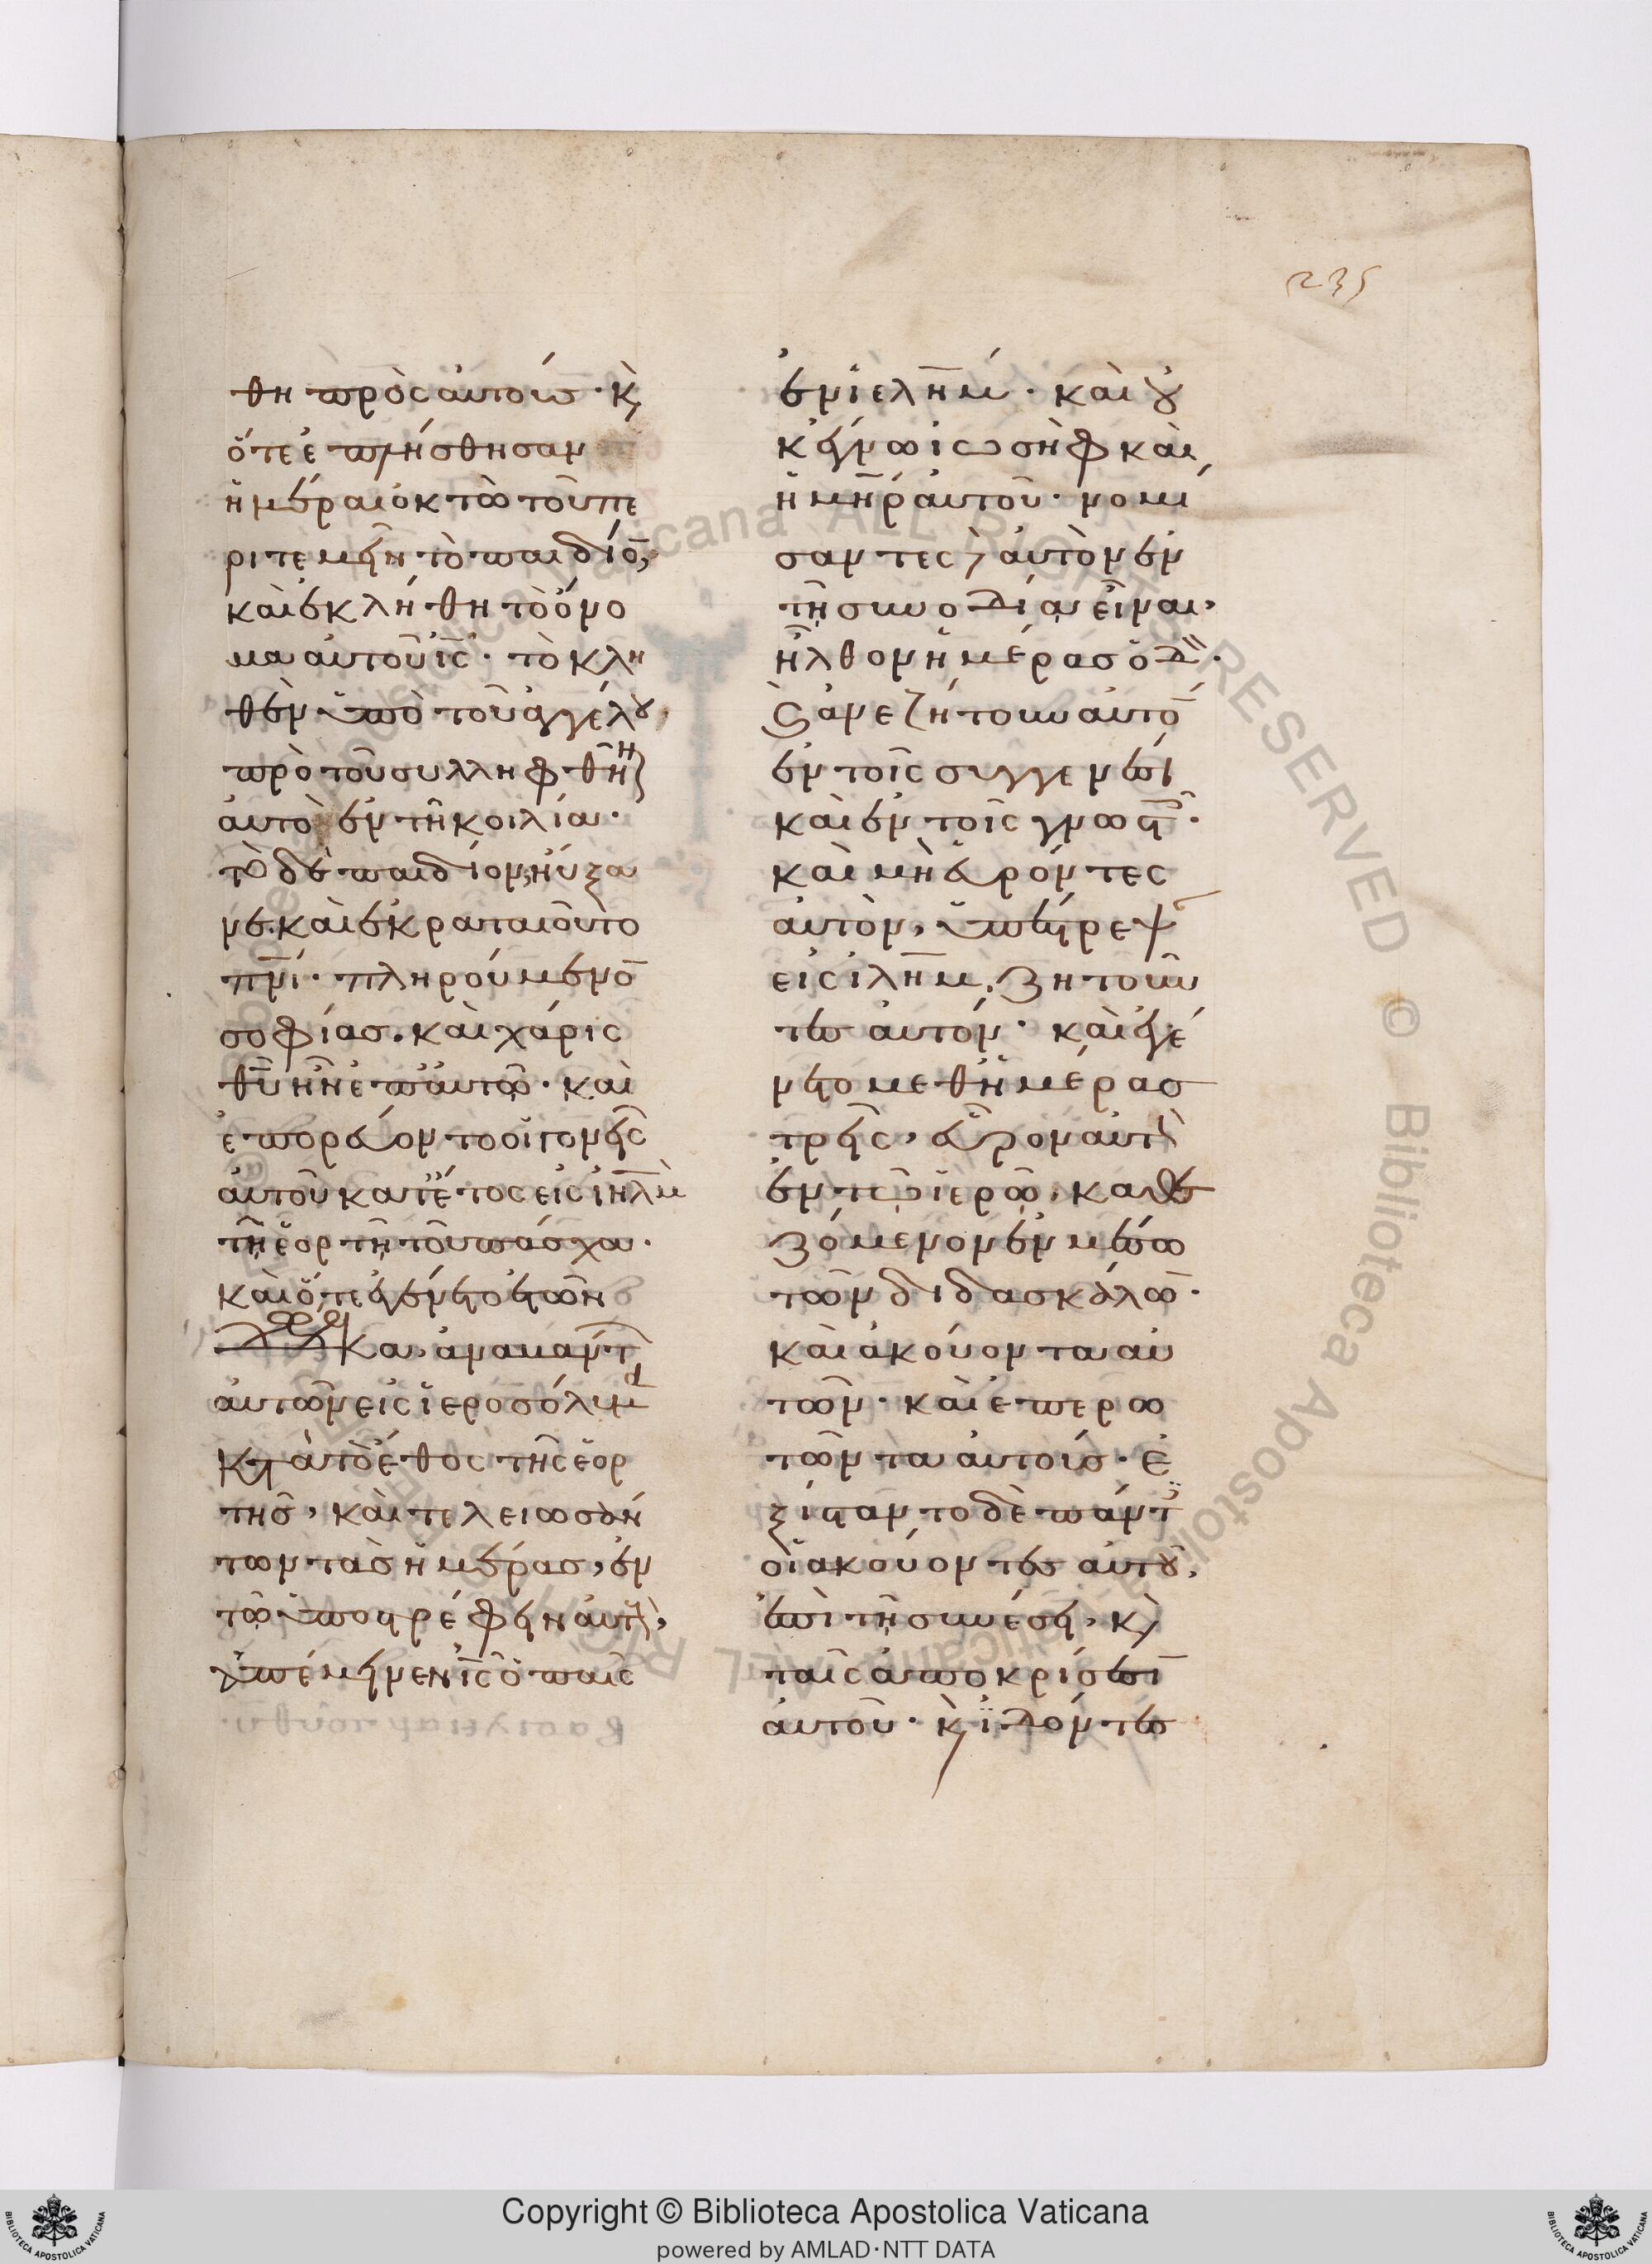 235
θη πρὸς αὐτούς· κ(αὶ)
ὅτε ἐπλήσθησαν
ἡμέραι ὀκτὼ τοῦ πε
ριτεμεῖν τὸ παιδίο̅,
καὶ ἐκλήθη τὸ ὄνο
μα αὐτοῦ ι̅ς̅· τὸ κλη
θὲν ὑπὸ τοῦ ἀγγέλου,
πρὸ τοῦ συλληφθῆν(αι)
αὐτὸ ἐν τῆ κοιλία·
τὸ δὲ παιδίον, ηὔξα
νε. καὶ ἐκραταιοῦτο
π̅ν̅ι· πληρούμενο̅
σοφίας. καὶ χάρις
θ̅υ̅ ἦν ἐπ' αὐτῶ· καὶ
ἐπορεύοντο οἱ γονεῖς
αὐτοῦ κατ' ἔτος εἰς ἰη̅λ̅μ
τῆ ἑορτῆ τοῦ πάσχα·
καὶ ὅτε ἐγένετο ἐτῶν
κα. ἀναβάντ(ων)
αὐτῶν εἰς ἱεροσόλυμα
κατὰ τὸ ἔθος τῆς ἑορ
τῆς, καὶ τελειωσάν
των τὰς ἡμέρας, ἐν
τῶ ὑποστρέφειν αὐτοὺς,
ὑπέμεινεν ι̅ς̅ ὁ παῖς
ἐν ἰελη̅μ· καὶ οὐ
κ ἔγνω ἰωσὴφ καὶ
ἡ μη̅ρ αὐτοῦ· νομί
σαντες δ(ὲ) αὐτὸν ἐν
τῆ συνοδία εἶναι,
ἦλθον ἡμέρας ὁδ(ὸν)·
κ(αὶ) ἀνεζήτουν αὐτό̅
ἐν τοῖς συγγενέσι
καὶ ἐν τοῖς γνωστ(οῖς)·
καὶ μὴ εὑρόντες
αὐτὸν, ὑπέστρεψ(αν)
εἰς ἱλη̅μ. ζητοῦν
τες αὐτόν· καὶ ἐγέ
νετο μεθ' ἡμέρας
τρεῖς, εὗρον αὐτὸ(ν)
ἐν τῶ ἱερῶ, καθε
ζόμενον ἐν μέσω
τῶν διδασκάλω̅·
καὶ ἀκούοντα αὐ
τῶν· καὶ ἐπερω
τῶντα αὐτούς· ἐ
ξίσταντο δὲ πάντ(ες)
οἱ ἀκούοντες αὐτοῦ,
ἐπὶ τῆ συνέσει, κ(αὶ)
ταῖς ἀποκρίσεσι̅
αὐτοῦ· κ(αὶ) ἰδόντες
Copyright © Biblioteca Apostolica Vaticana
powered by AMLAD·NTT DATA